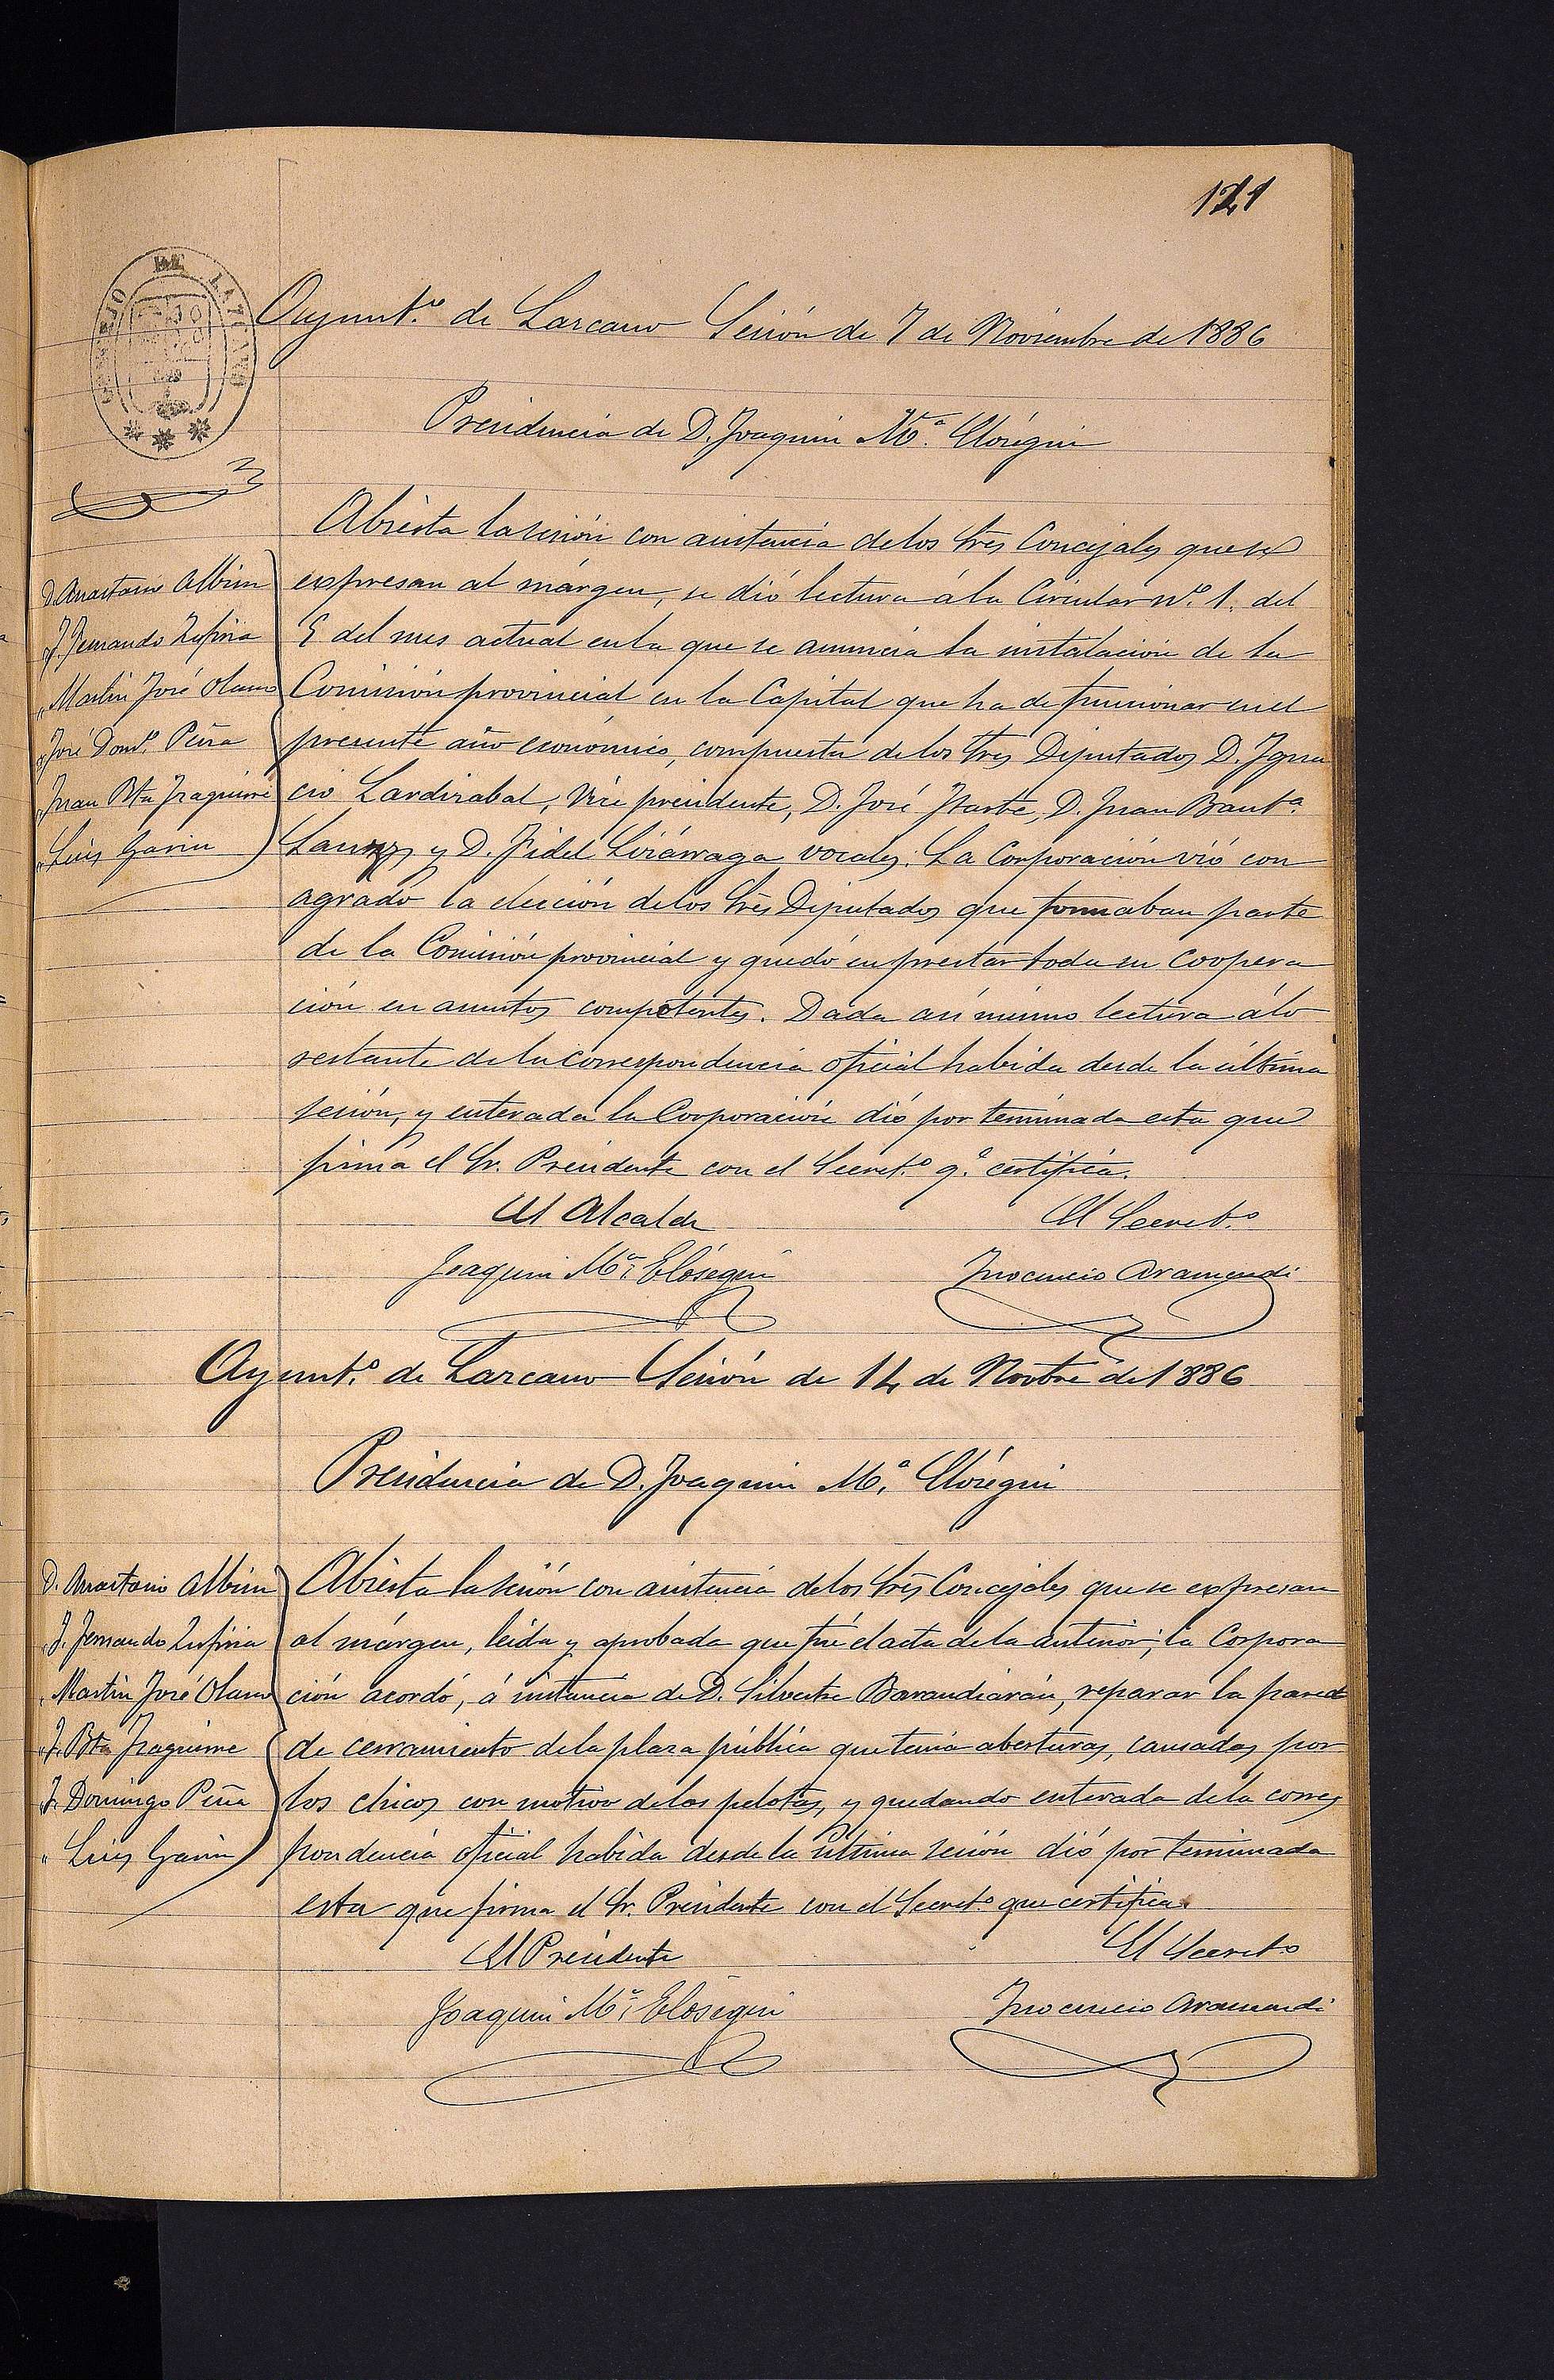 121
Ayunt.º de Lazcano Sesión de 7 de Noviembre de 1886
Presidencia de D. Joaquin M.ª Elósegui
D. Anastasio Albisu
J. Fernando Zufiria
" Martin José Olano
" José Dom.º Peña
" Juan Bta Iraguirre
" Luis Garin
Abierta la sesión con asistencia de los Sres Concejales que se
expresan al márgen, se dió lectura á la Circular Nº. 1. del
5 del mes actual en la que se anuncia la instalación de la
Comisión provincial en la Capital que ha de funcionar en el
presente año económico, compuesta de los Sres Diputados D. Igna
cio Lardizabal, Vice presidente, D. José Itarte, D. Juan Baut.ª
y D. Fidel Lizárraga vocales. La Corporación vió con
agrado la elección de los Sres Diputados que formaban parte
de la Comisión provincial y quedó en prestar toda su coopera
ción en asuntos competentes. Dada asi mismo lectura á lo
restante de la correspondencia oficial habida desde la última
sesión, y enterada la Corporación dió por terminada esta que
firma el Sr. Presidente con el Secret.º q.e certifica.
El Alcalde
El Secret.º
Joaquin M.ª Elósegui
Inocencio Aramendi
Ayunt.º de Lazcano Sesión de 14 de Novbre de 1886
Presidencia de D. Joaquin M.ª Elósegui
D. Anastasio Albisu
" J. Fernando Zufiria
" Martin José Olano
" J. Bta Iraguirre
" J. Domingo Peña
" Luis Garin
Abierta la sesión con asistencia de los Sres Concejales que se expresan
al márgen, leida y aprobada que fué el acta de la anterior; la Corpora
ción acordó, á instancia de D. Silvestre Barandiarán, reparar la pared
de cerramiento de la plaza pública que tenia aberturas, causadas por
los chicos con motivo de las pelotas, y quedando enterada de la corres
pondencia oficial habida desde la última sesión dió por terminada
esta que firma el Sr. Presidente con el Secret.º que certifica.
El Presidente
El Secretº
Joaquin M.ª Elósegui
Inocencio Aramendi